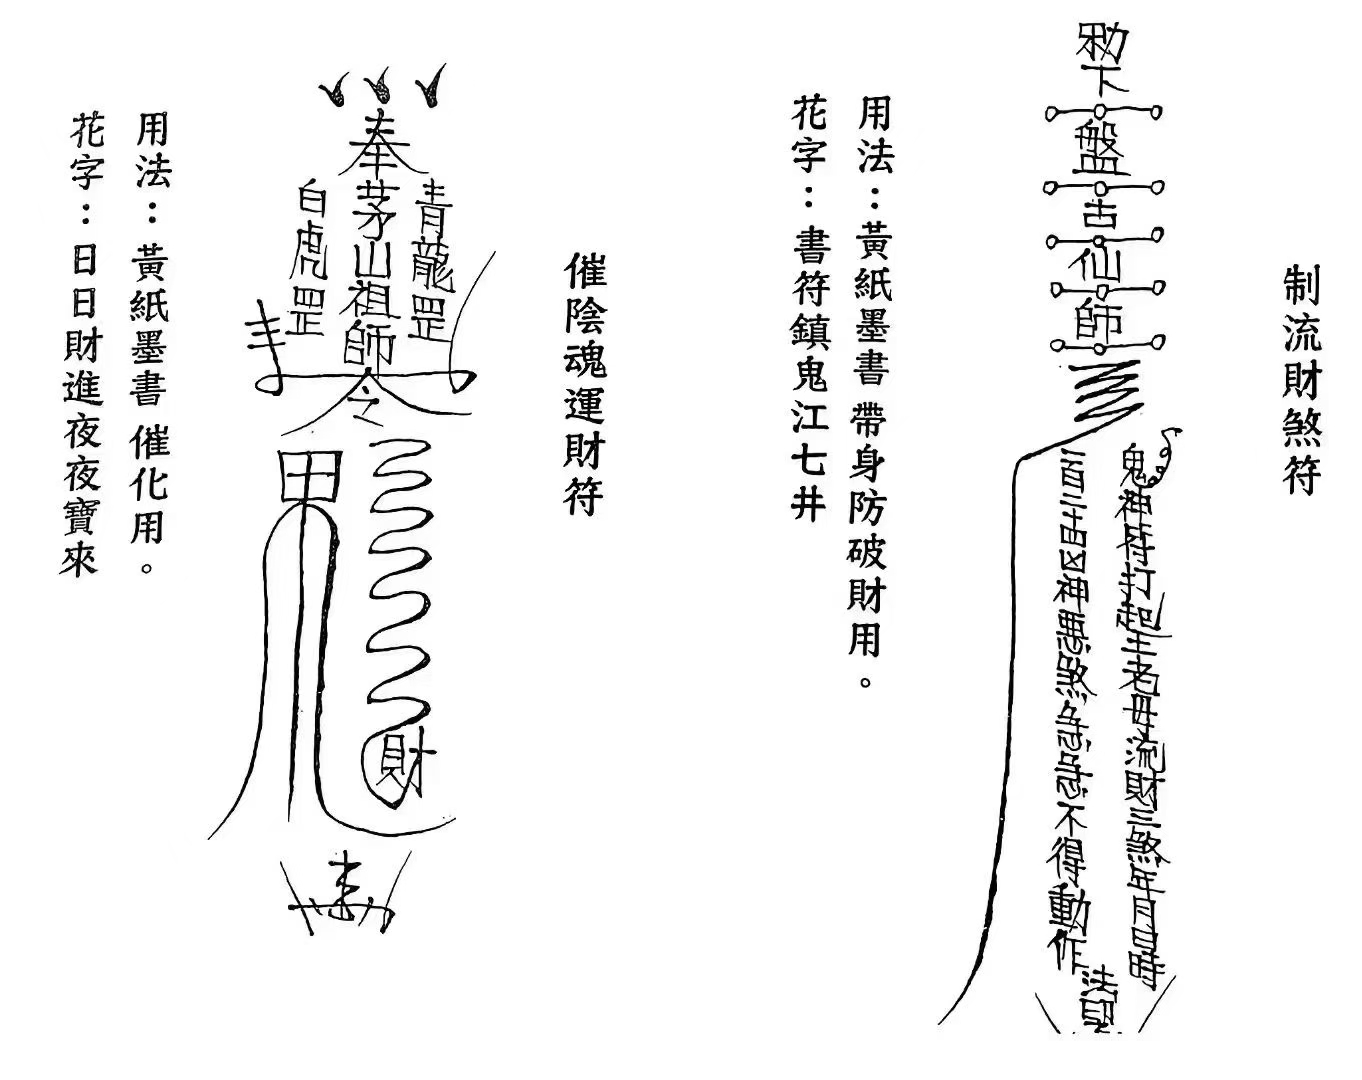 制流財煞符
勅下盤古仙師
鬼神符打起王老母流財三煞年月日時
一百二十四凶神悪煞急急不得動作
法印
用法：黃紙墨書 帶身防破財用。
花字：書符鎮鬼江七井
催陰魂運財符
奉茅山祖師令
青龍罡
白虎罡
財
用法：黃紙墨書 催化用。
花字：日日財進夜夜寶來